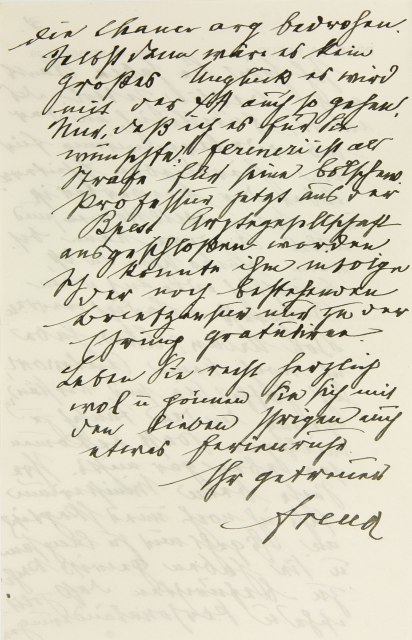 die Chancen arg bedrohen.
Selbst dann wäre es kein
großes Unglück es wird
mit der ψA auch so gehen.
Nur, daß ich es für Sie
wünschte. Ferenczi ist als
Strafe für seine bolschew.
Professur jetzt aus der
Bpest Ärztegesellschaft
ausgeschloßen worden
Ich konnte ihm infolge
der noch bestehenden
Briefzensur nur zu der
Ehrung gratuliren.
Leben Sie recht herzlich
wol u gönnen Sie sich mit
den lieben Ihrigen auch
etwas Ferienruhe
Ihr getreuer
Freud